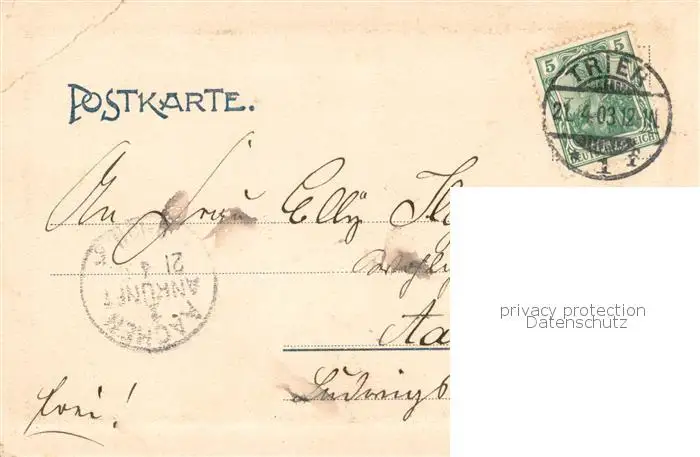 POSTKARTE.
5 5
TRIER
21.4.03.12-1N.
* 1 f
DEUTSCHES REICH
An Frau Elly
AACHEN
1
ANKUNFT
21
4
Aa
Ludwigs
frei!
privacy protection
Datenschutz